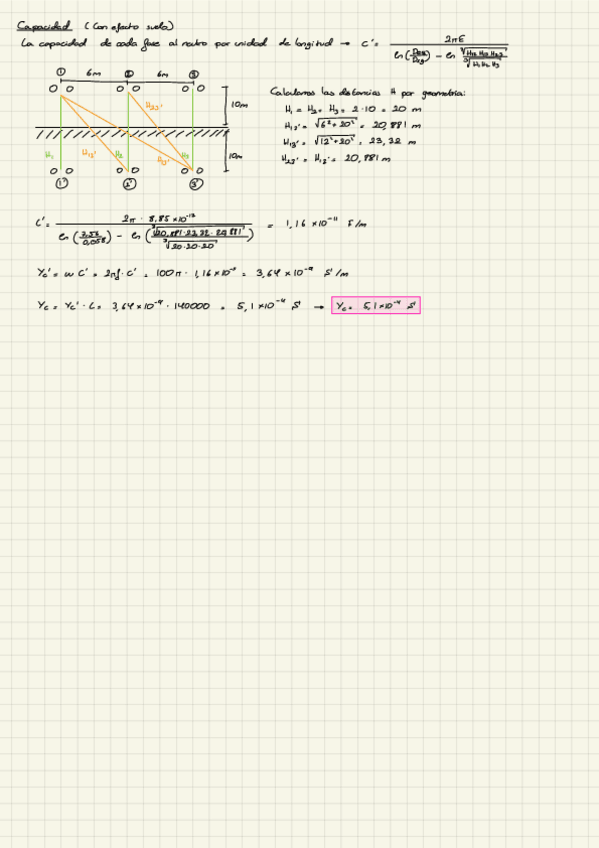 Capacidad (Con efecto suelo)
La capacidad de cada fase al neutro por unidad de longitud → C' = 2πε / (ln(DMG/) - ln(∛(H12' H13' H23') / ∛(H1 H2 H3)))
① 6m ② 6m ③
10m
H23'
H1 H12' H2 H13' H3
10m
①' ②' ③'
Calculamos las distancias H por geometría:
H1 = H2 = H3 = 2 · 10 = 20 m
H12' = √(6² + 20²) = 20,881 m
H13' = √(12² + 20²) = 23,32 m
H23' = H12' = 20,881 m
C' = 2π · 8,85 × 10⁻¹² / (ln(7,56/0,058) - ln(∛(20,881 · 23,32 · 20,881) / ∛(20 · 20 · 20))) = 1,16 × 10⁻¹¹ F/m
Yc' = ω C' = 2πf · C' = 100π · 1,16 × 10⁻¹¹ = 3,64 × 10⁻⁹ S/m
Yc = Yc' · L = 3,64 × 10⁻⁹ · 140000 = 5,1 × 10⁻⁴ S → Yc = 5,1 × 10⁻⁴ S